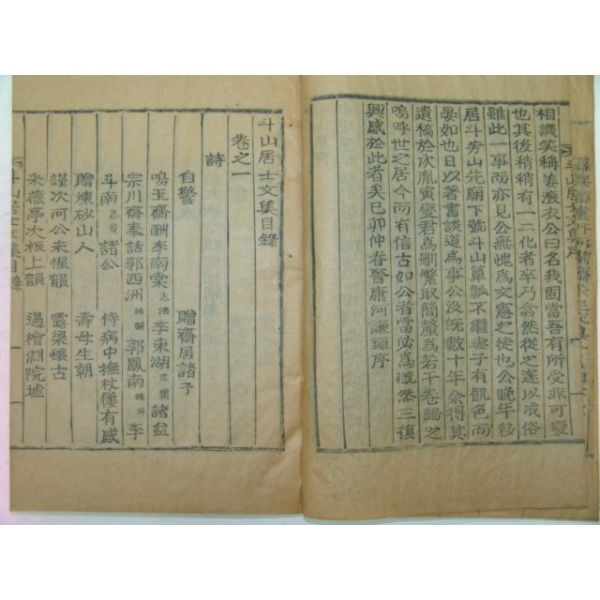 相譏笑稱姜潑衣公曰名我固當吾有所受非可變
也其後稍有一二化者卒乃翕然從之遂以成俗
雖此一事而亦見公無愧爲文憲之徒也公晚年移
居斗芳山先廟下號斗山簞瓢不繼妻子有飢色而
晏如也日以著書談道爲事公沒旣數十年余得其
遺稿於次胤寅燮君爲刪繁取簡釐爲若干卷歸之
嗚呼世之居今而有信古如公者當必爲慨然三復
興感於此者矣己卯仲春晉康河謙鎭序
斗山居士文集目錄
卷之一
詩
自警 贈齋居諸子
鳴玉齋酬李南棠 李東湖 諸益
宗川齋泰話郭西洲 郭鳳南 李
斗南 諸公 侍病中撫杖僊有感
贈煉砂山人 壽母生朝
謹次河公來惺韻 靈梁懷古
采薇亭次板上韻 過檜淵院墟
斗山居士文集目錄 一